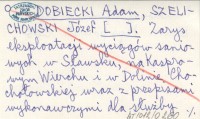 DOBIECKI Adam, SZELI-
CHOWSKI Józef [ ]. Zarys
eksploatacji wyciągów sanio-
wych w Sławsku, na Kaspro-
wym Wierchu i w Dolinie Cho-
chołowskiej wraz z przepisami
wykonawczymi dla służby